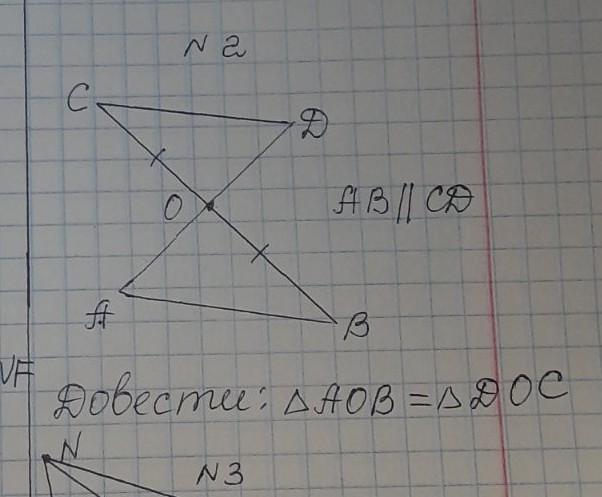 N 2
C
D
O
AB || CD
A
B
VF
Довести: △AOB = △DOC
N
N3